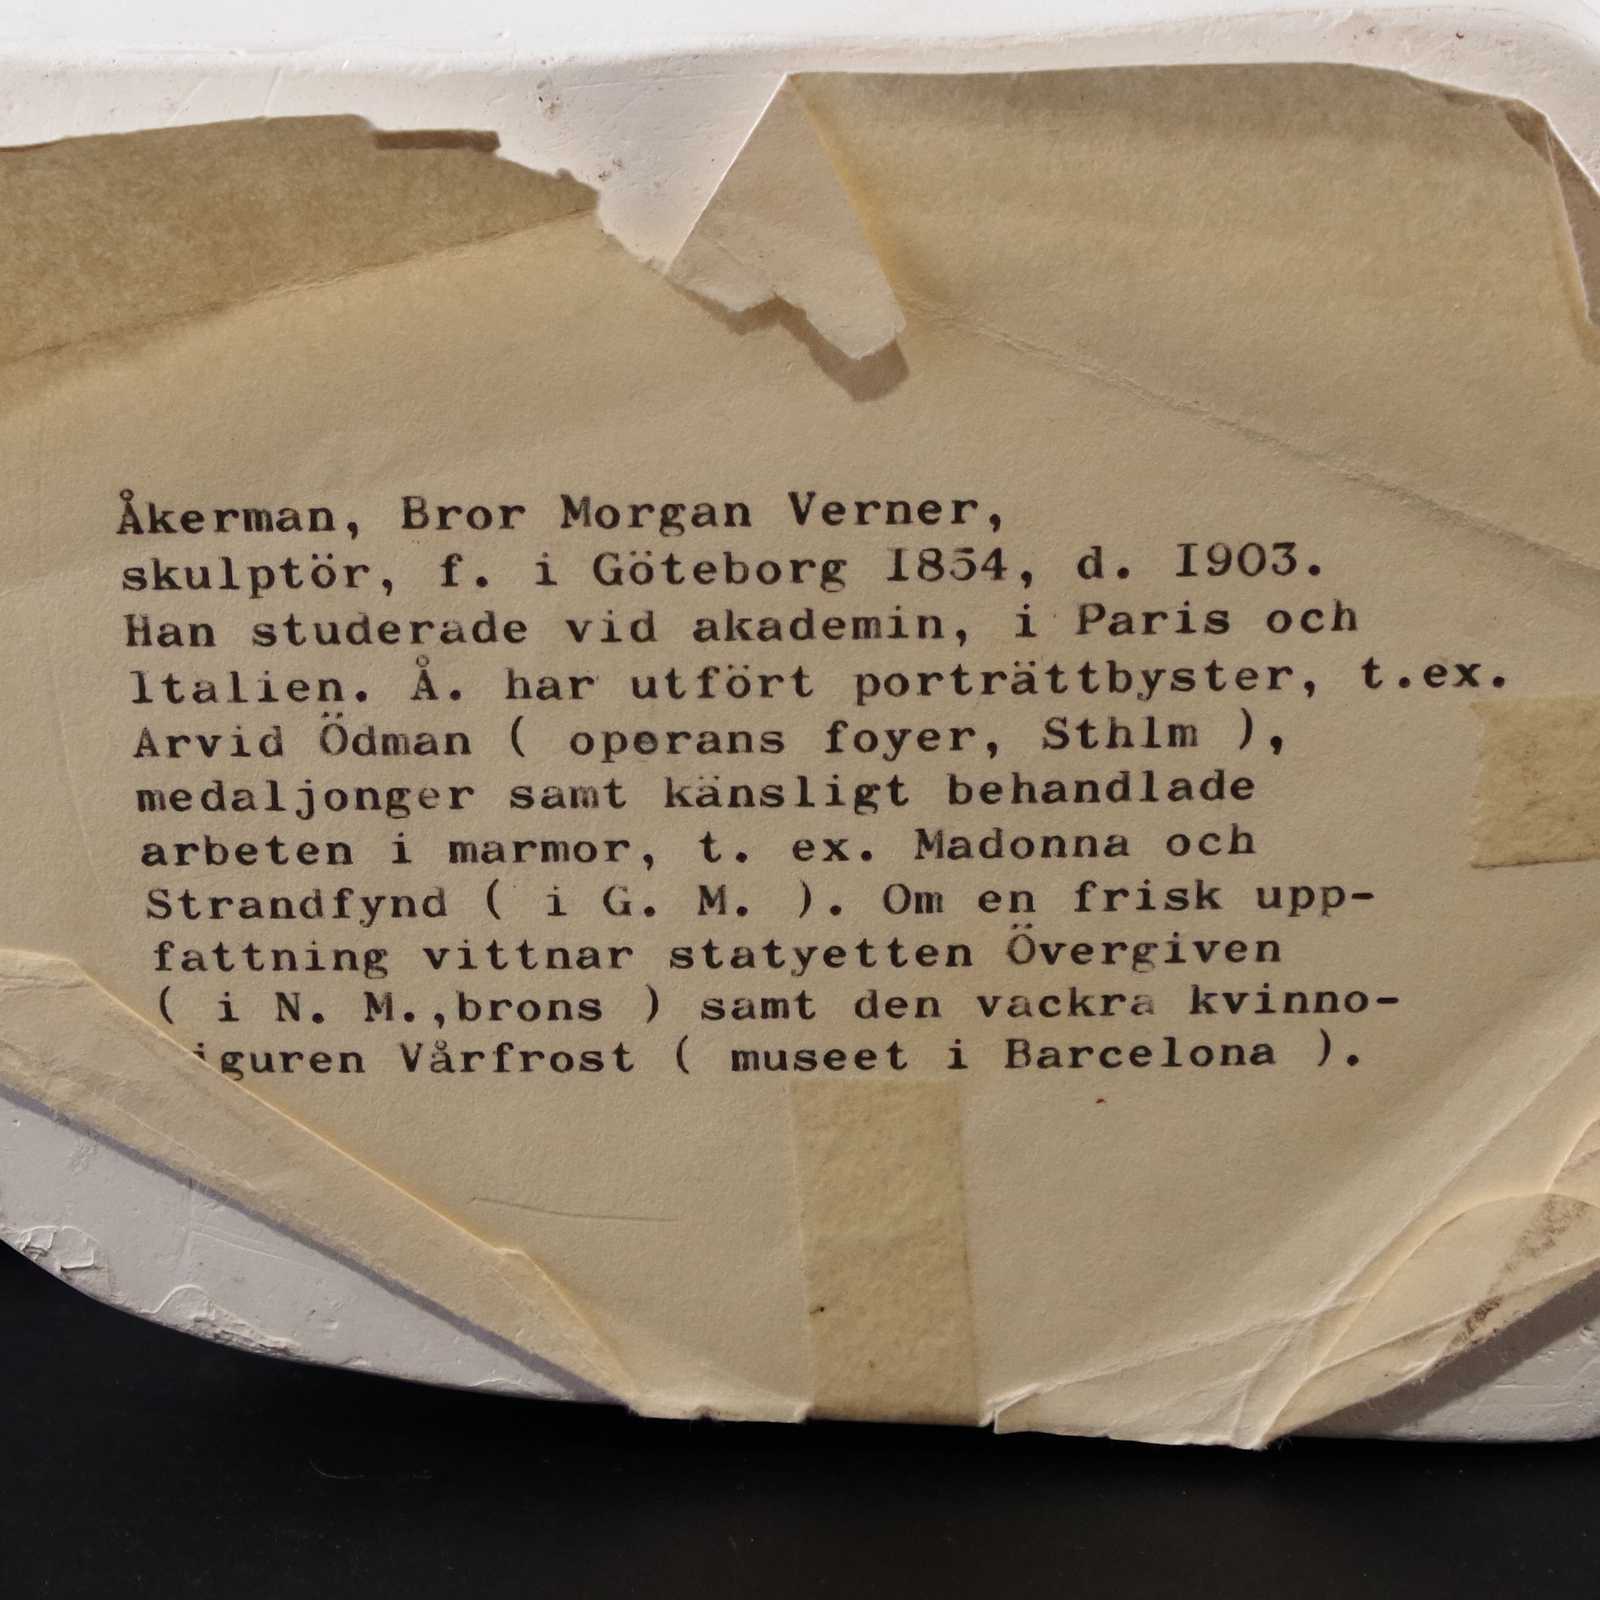 Åkerman, Bror Morgan Verner,
skulptör, f. i Göteborg I854, d. I903.
Han studerade vid akademin, i Paris och
Italien. Å. har utfört porträttbyster, t.ex.
Arvid Ödman ( operans foyer, Sthlm ),
medaljonger samt känsligt behandlade
arbeten i marmor, t. ex. Madonna och
Strandfynd ( i G. M. ). Om en frisk upp-
fattning vittnar statyetten Övergiven
( i N. M.,brons ) samt den vackra kvinno-
iguren Vårfrost ( museet i Barcelona ).